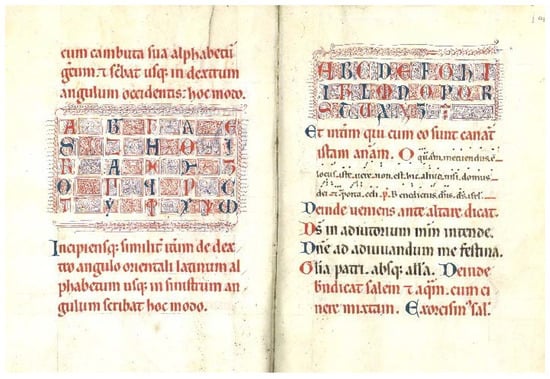 cum cambuta sua alphabetū
⁊ usq; in dextrum
angulum occidentis: hoc modo.
A B E
S H I
Incipiensq; similit̄ de dex
tro angulo orientali latinum al
phabetum usq; in sinistrum an
gulum scribat hoc modo.
A B C D E F G H I
K L M N O P Q R
S T U X
Et qui cum eo sunt canāt
istam anam̄. O quā metuendus ē
locus iste vere non est hic aliud nisi domus
dei et porta celi
Deinde veniens ante altare dicat.
Dṡ in adiutorium mm̄ intende.
Dnē ad adiuvandum me festina.
Glia patri. absq; alla. Deinde
bn̄dicat salem ⁊ aq̄m. cum ci
nere mixtum. Exorcism' sal'.